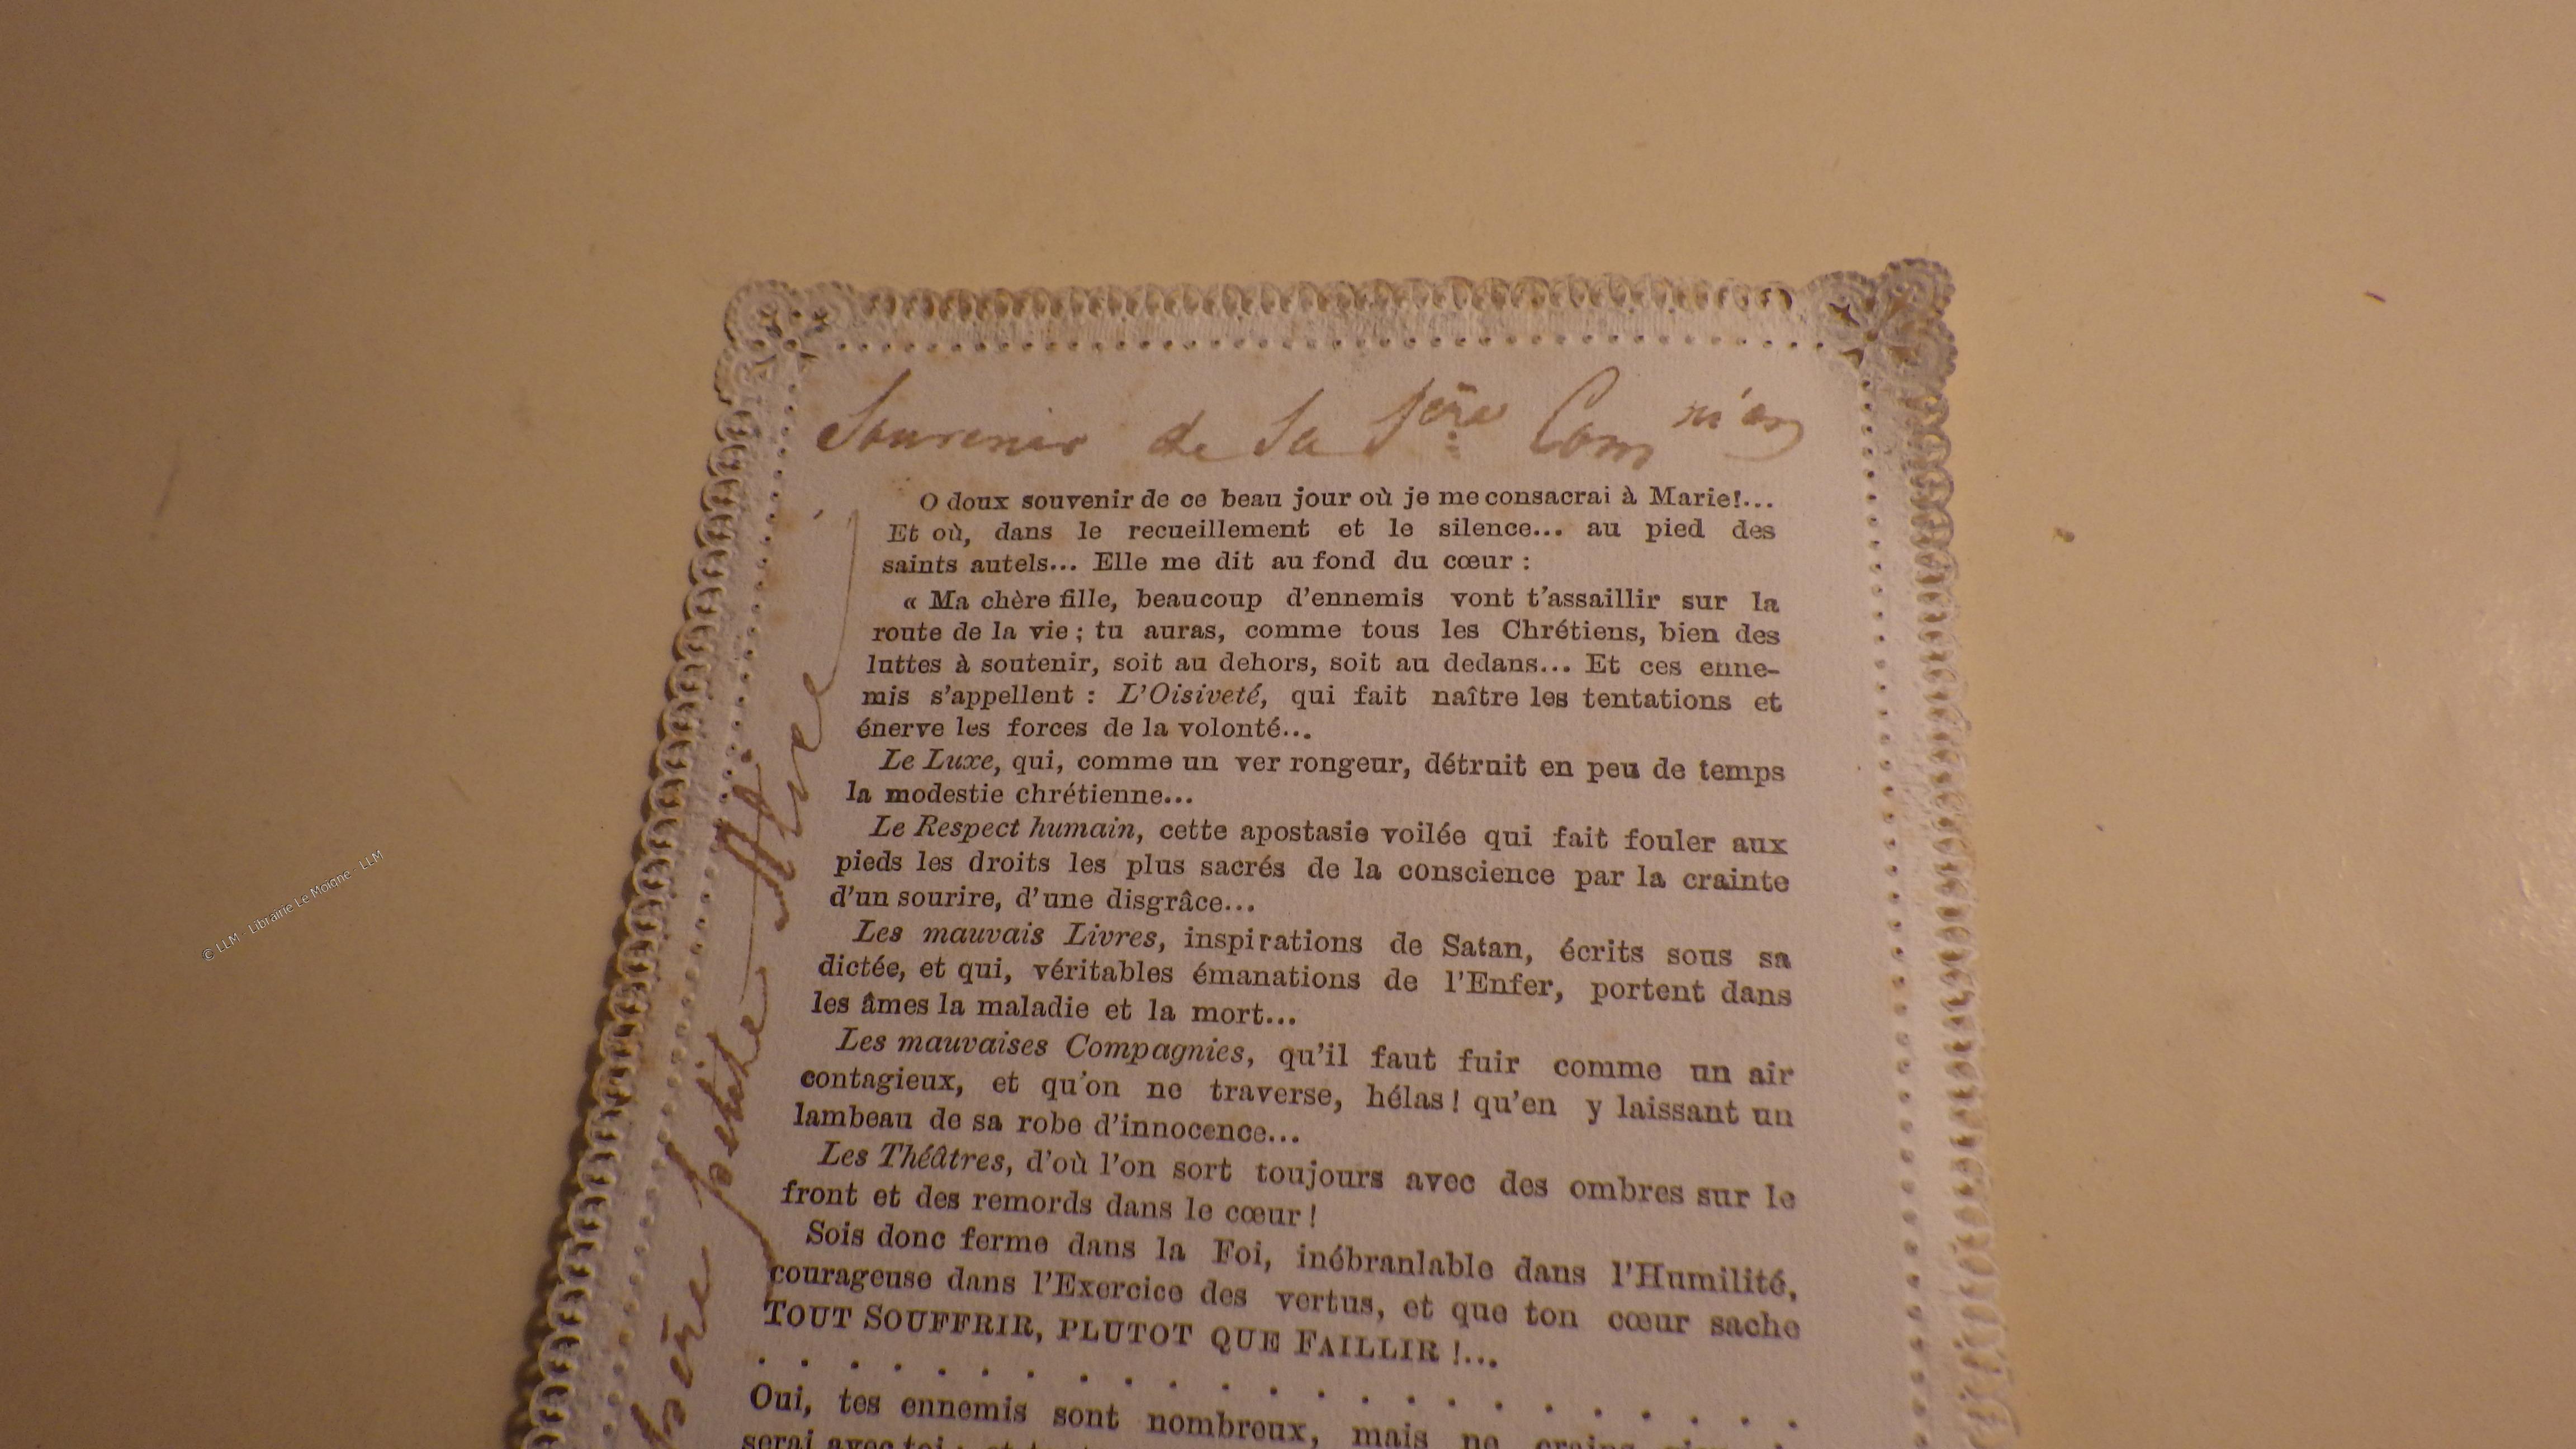 Souvenir de Sa 1ère Comnion
O doux souvenir de ce beau jour où je me consacrai à Marie!...
Et où, dans le recueillement et le silence... au pied des
saints autels... Elle me dit au fond du cœur :
« Ma chère fille, beaucoup d'ennemis vont t'assaillir sur la
route de la vie ; tu auras, comme tous les Chrétiens, bien des
luttes à soutenir, soit au dehors, soit au dedans... Et ces enne-
mis s'appellent : L'Oisiveté, qui fait naître les tentations et
énerve les forces de la volonté...
Le Luxe, qui, comme un ver rongeur, détruit en peu de temps
la modestie chrétienne...
Le Respect humain, cette apostasie voilée qui fait fouler aux
pieds les droits les plus sacrés de la conscience par la crainte
d'un sourire, d'une disgrâce...
Les mauvais Livres, inspirations de Satan, écrits sous sa
dictée, et qui, véritables émanations de l'Enfer, portent dans
les âmes la maladie et la mort...
Les mauvaises Compagnies, qu'il faut fuir comme un air
contagieux, et qu'on ne traverse, hélas ! qu'en y laissant un
lambeau de sa robe d'innocence...
Les Théâtres, d'où l'on sort toujours avec des ombres sur le
front et des remords dans le cœur !
Sois donc ferme dans la Foi, inébranlable dans l'Humilité,
courageuse dans l'Exercice des vertus, et que ton cœur sache
TOUT SOUFFRIR, PLUTOT QUE FAILLIR !...
. . . . . . . . . . . . . . . . . . . . . . .
Oui, tes ennemis sont nombreux, mais ne crains
serai avec toi
petite
© LLM - Librairie Le Moigne - LLM